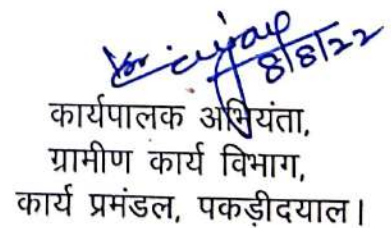 8/8/22
कार्यपालक अभियंता,
ग्रामीण कार्य विभाग,
कार्य प्रमंडल, पकड़ीदयाल।